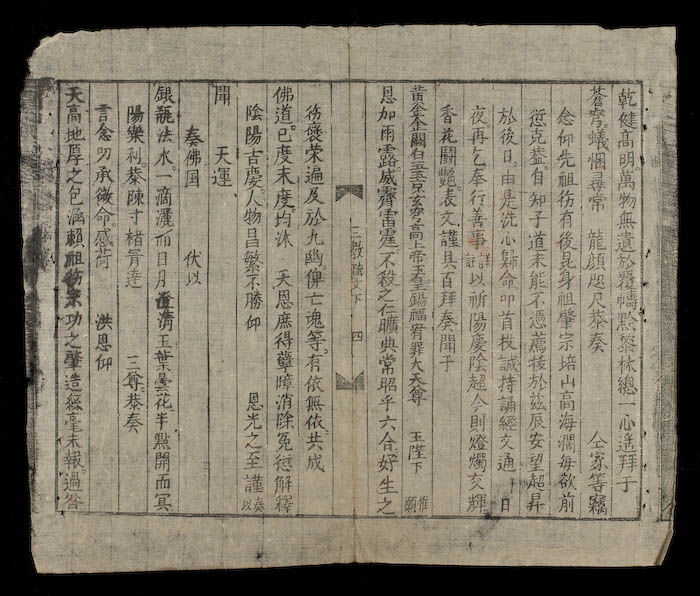 乾健髙明。萬物無遺於覆幬。黔黎林總。一心遥拜于
蒼穹。蟻悃尋常　龍顔咫尺。恭奏　仝家等竊
念仰先祖彷有後昆身祖肇宗培山高海濶每欲前
愆克蓋自知子道未能不憑薦拔於兹辰安望超昇
於後日。由是洗心歸命叩首投誠持誦經文通 日
夜再乞奉行善事以祈陽慶陰超今則燈燭交輝
香花鬪艷。表文謹具百拜奏聞于
黄金金闕白玉玉京玄穹高上帝玉皇錫福宥罪大天尊　玉陛下　惟願
恩加雨露。威霽雷霆。不殺之仁曠典常昭乎六合。好生之
三教疏文下　四
彷褒荣遍及於九幽。俾亡魂等。有依無依。共成
佛道。已度未度均沐　天恩庶得孽障消除冤愆解釋
陰陽吉慶。人物昌繁不勝仰　恩光之至謹奏以
聞　天運
奏佛国　伏以
銀瓶法水。一滴灑而日月澄清玉葉曇花半點開而冥
陽樂利。恭陳寸楮霄達　三尊。恭奏
言念叨承微命。感荷　洪恩仰
天高地厚之包涵頼祖彷宗功之肇造絲毫未報。過咎